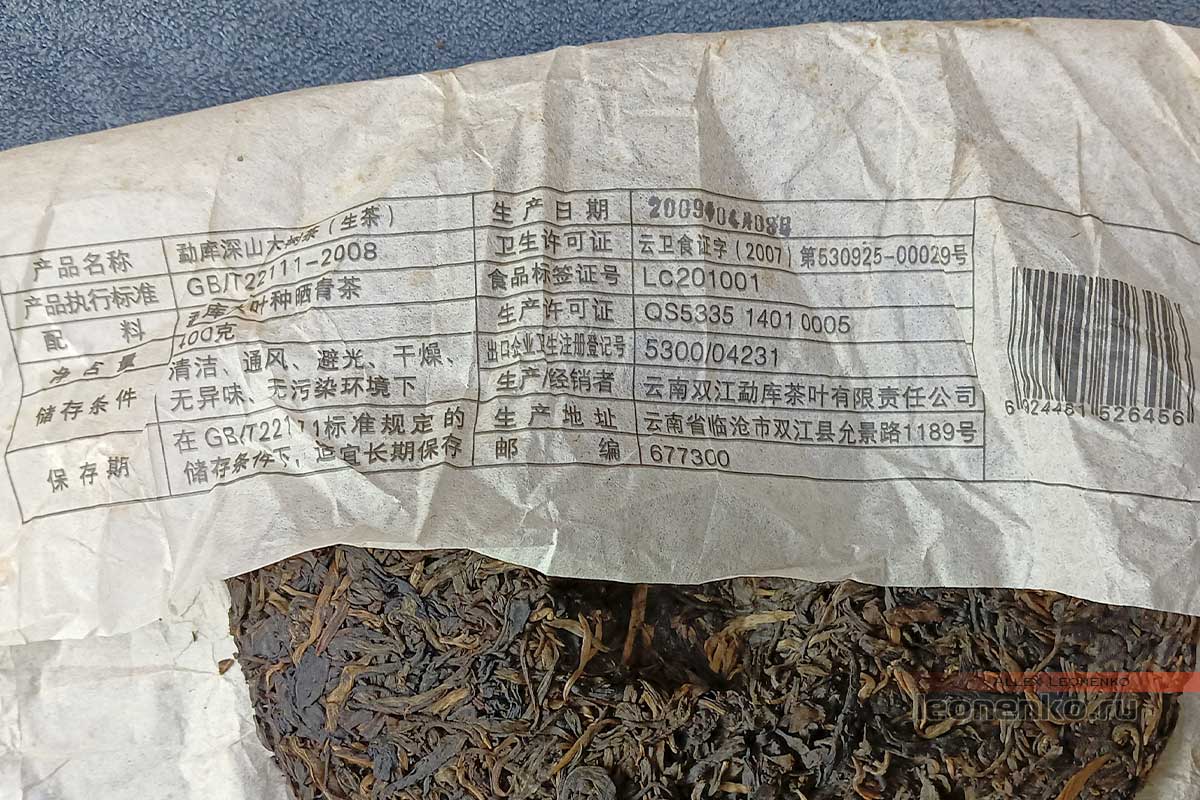 产品名称 勐库深山大树茶（生茶）
产品执行标准 GB/T22111-2008
配 料 勐库大叶种晒青茶
净含量 400克
储存条件 清洁、通风、避光、干燥、
无异味、无污染环境下
保存期 在GB/T22111标准规定的
储存条件下，适宜长期保存
生产日期 2009年04月08日
卫生许可证 云卫食证字（2007）第530925-00029号
食品标签证号 LC201001
生产许可证 QS5335 1401 0005
出口企业卫生注册登记号 5300/04231
生产/经销者 云南双江勐库茶叶有限责任公司
生产地址 云南省临沧市双江县允景路1189号
邮 编 677300
6 924481 526456
ALLEX LEONENKO
leonenko.ru